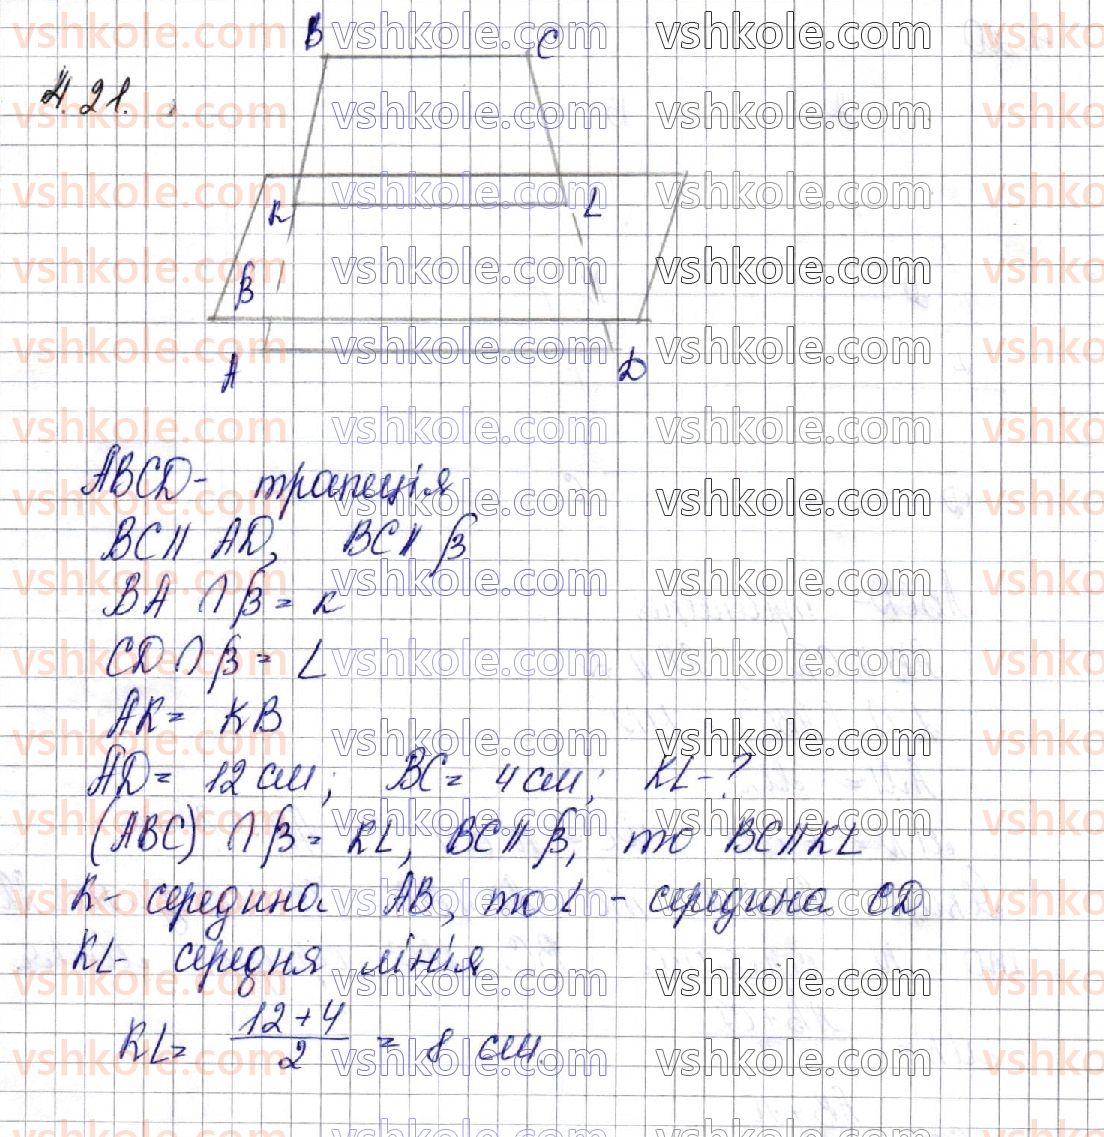 4.21.
B C
K L
β
A D
ABCD - трапеція
BC || AD, BC || β
BA ∩ β = K
CD ∩ β = L
AK = KB
AD = 12 см; BC = 4 см; KL - ?
(ABC) ∩ β = KL, BC || β, то BC || KL
K - середина AB, то L - середина CD
KL - середня лінія
KL = (12 + 4) / 2 = 8 см.
vshkole.com